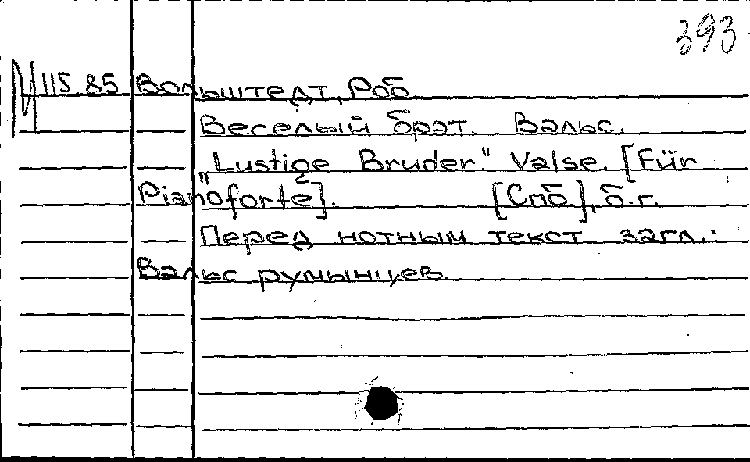 393
М 115.85 Вольштедт, Роб.
Веселый брат. Вальс.
"Lustige Bruder." Valse. [Für
Pianoforte]. [Спб], б.г.
Перед нотным текст. загл.:
Вальс румынцев.